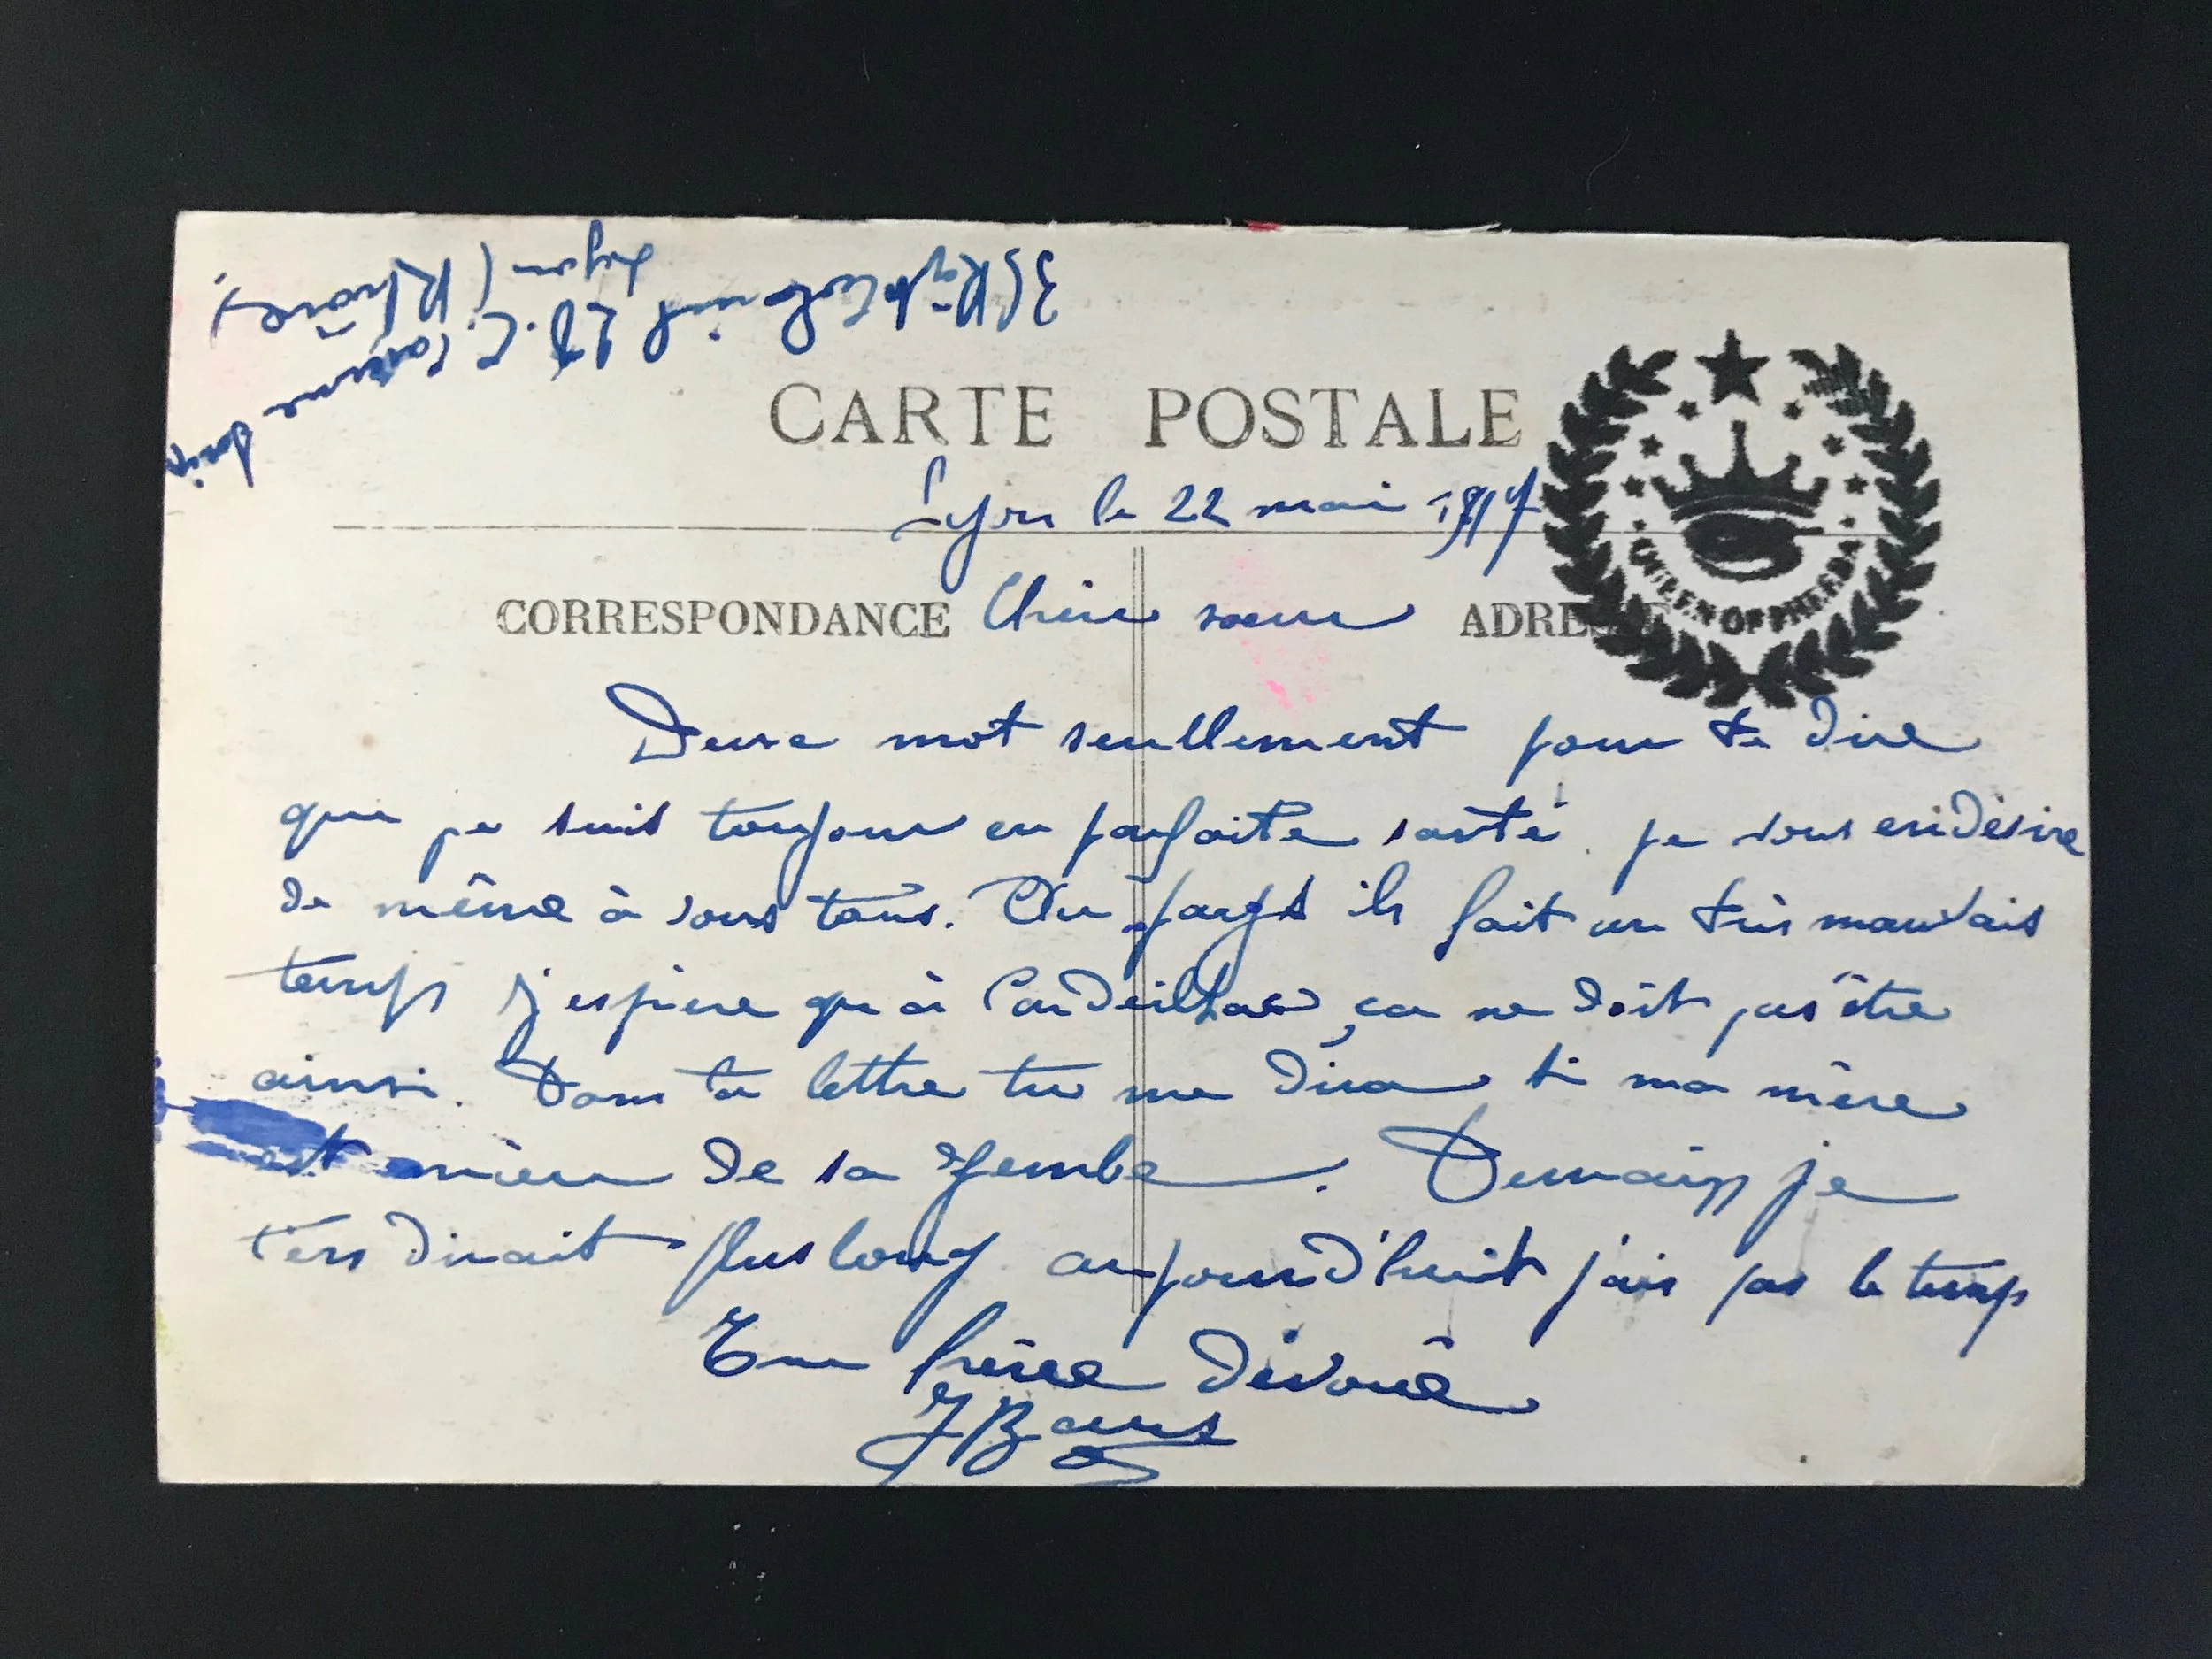 CARTE POSTALE
Lyon le 22 mai 1917
CORRESPONDANCE Chère soeur ADRE
QUEEN OF THE
Deux mot seullement pour te dire
que je suis toujour en parfaite santé. je vous en désire
de même à vous tous. Au pays il fait un très mauvais
temps j'espère qu'à Cardeilhac ça ne doit pas être
ainsi. Dans ta lettre tu me dira si ma mère
est mieux de sa jembe. Demain je
t'en dirait plus long aujourd'huit j'ais pas le temp
Ton frère dévoué
J Baus
Colonial
Caserne
Lyon (Rhône)